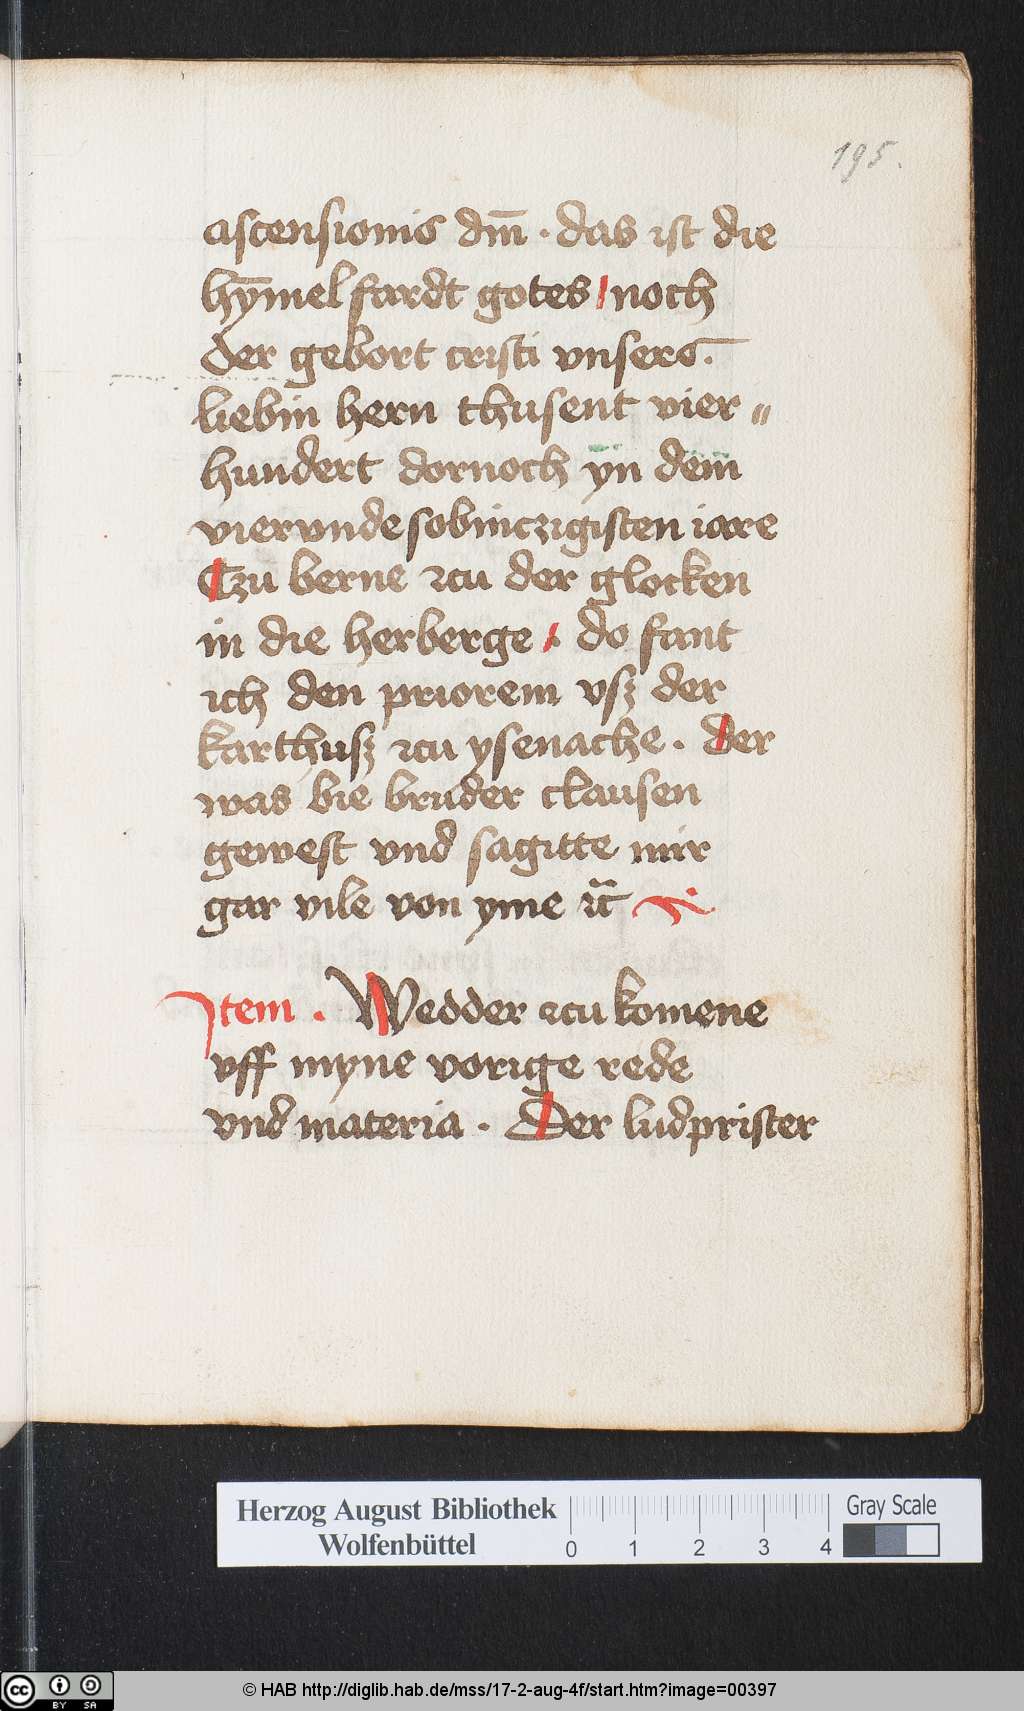 195.
ascensionis dm̄ · das ist die
hȳmelfardt gotes / noch
der gebort cristi vnsers.
liebin hern thusent vier〃
hundert dornoch yn dem
viervndesobinczigisten iare
Czu berne zcu der glocken
in die herberge /. do fant
ich den priorem vsz der
karthusz zcu ysenache . der
was bie bruder clausen
gewest vnd sagitte mir
gar vile von yme
Item . Wedder zcu komene
vff myne vorige rede
vnd materia . Der ludprister
Herzog August Bibliothek
Wolfenbüttel
0 1 2 3 4
Gray Scale
cc BY SA
© HAB http://diglib.hab.de/mss/17-2-aug-4f/start.htm?image=00397